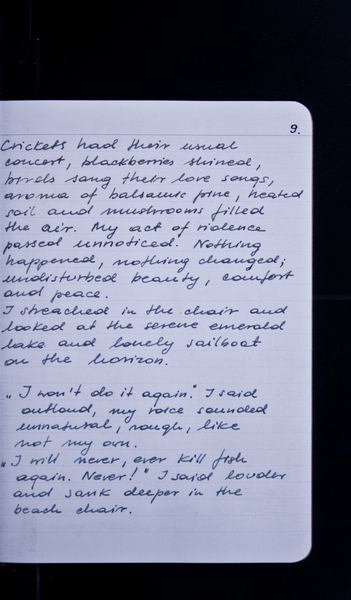 9.
Crickets had their usual
concert, blackberries shined,
birds sang their love songs,
aroma of balsamic pine, heated
soil and mushrooms filled
the air. My act of violence
passed unnoticed. Nothing
happened, nothing changed;
undisturbed beauty, comfort
and peace.
I streached in the chair and
looked at the serene emerald
lake and lonely sailboat
on the horizon.
„I won't do it again." I said
outloud, my voice sounded
unnatural, rough, like
not my own.
„I will never, ever kill fish
again. Never!" I said louder
and sank deeper in the
beach chair.